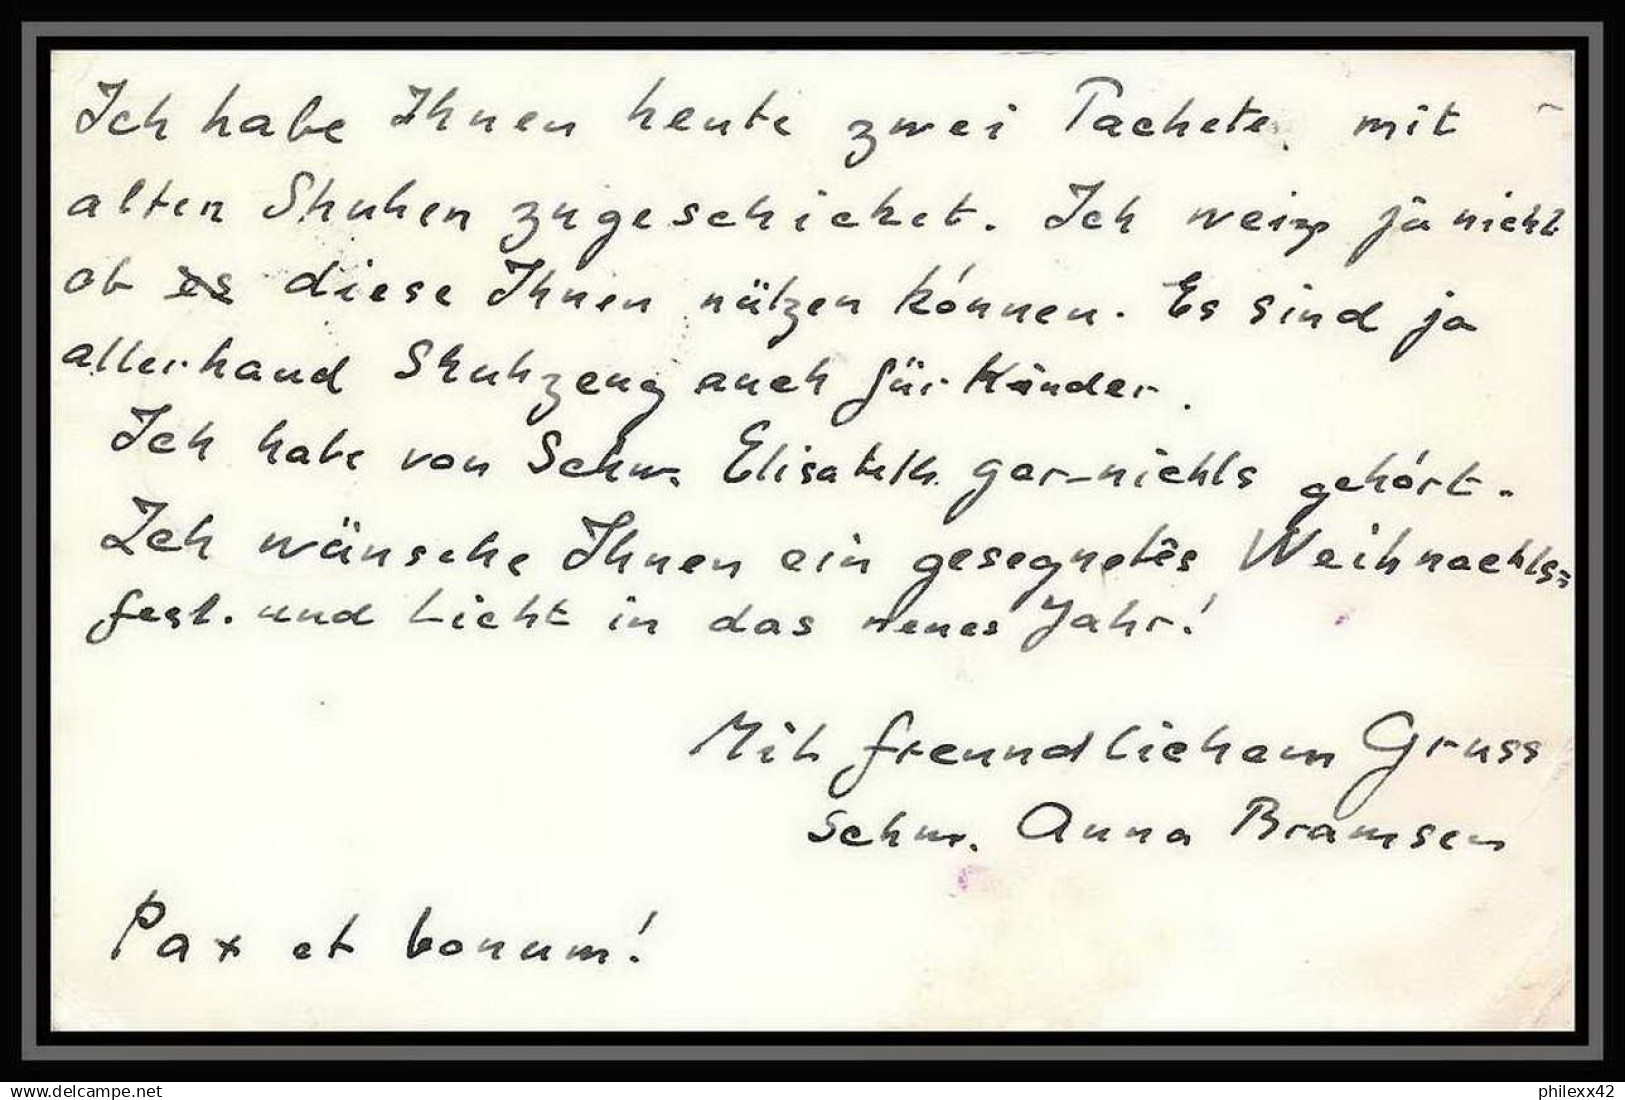 Ich habe Ihnen heute zwei Pachete mit
alten Shuhen zugeschicket. Ich weisz ja nicht
ob es diese Ihnen nützen können. Es sind ja
allerhand Shuhzeug auch für Kinder.
Ich habe von Schw. Elisabeth gar-nichts gehört.
Ich wünsche Ihnen ein gesegnetes Weihnachts=
fest. und Licht in das neues Jahr!
Mit freundlichem Gruss
Schw. Anna Bramsen
Pax et bonum!
delcampe.net
philexx42